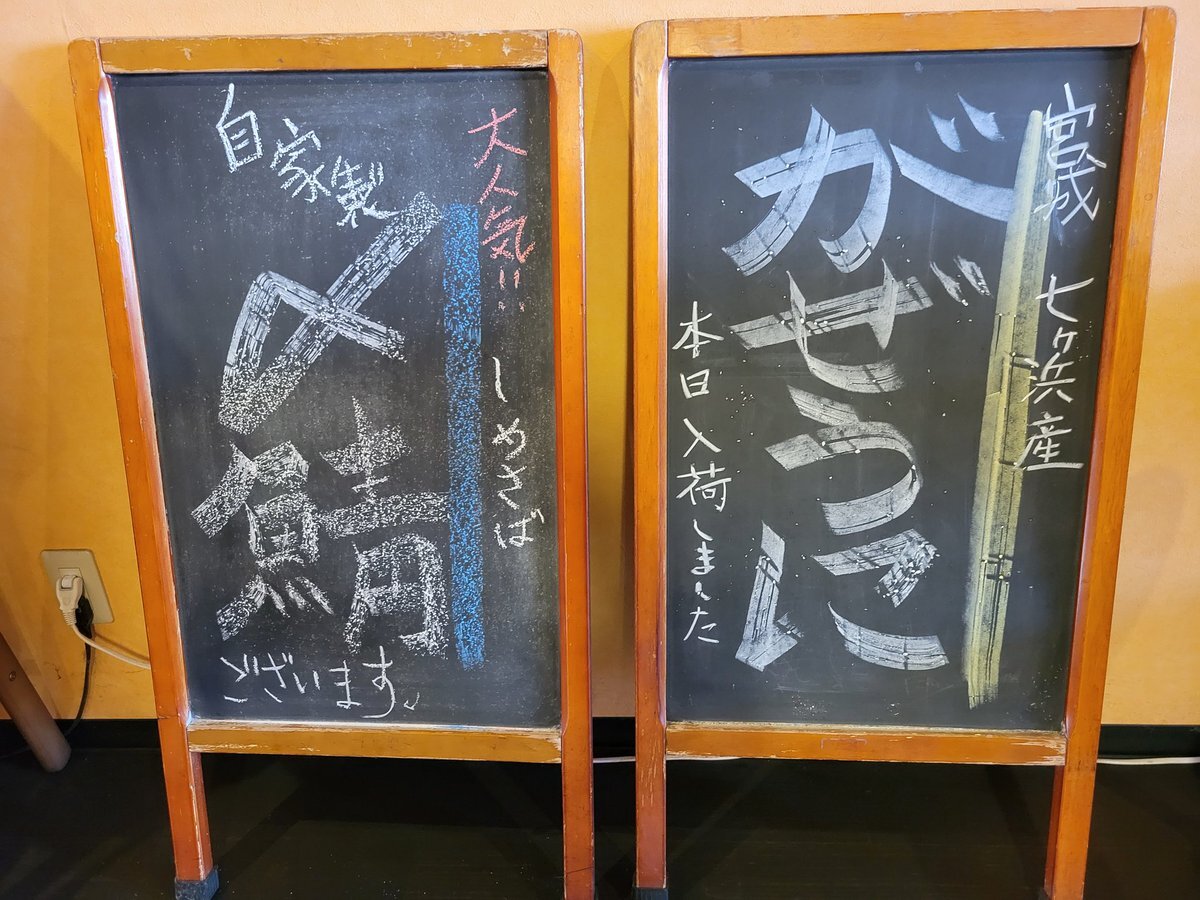 大人気!!
しめさば
自家製
〆鯖
ございます。
宮城 七ヶ浜産
がぜうに
本日入荷しました